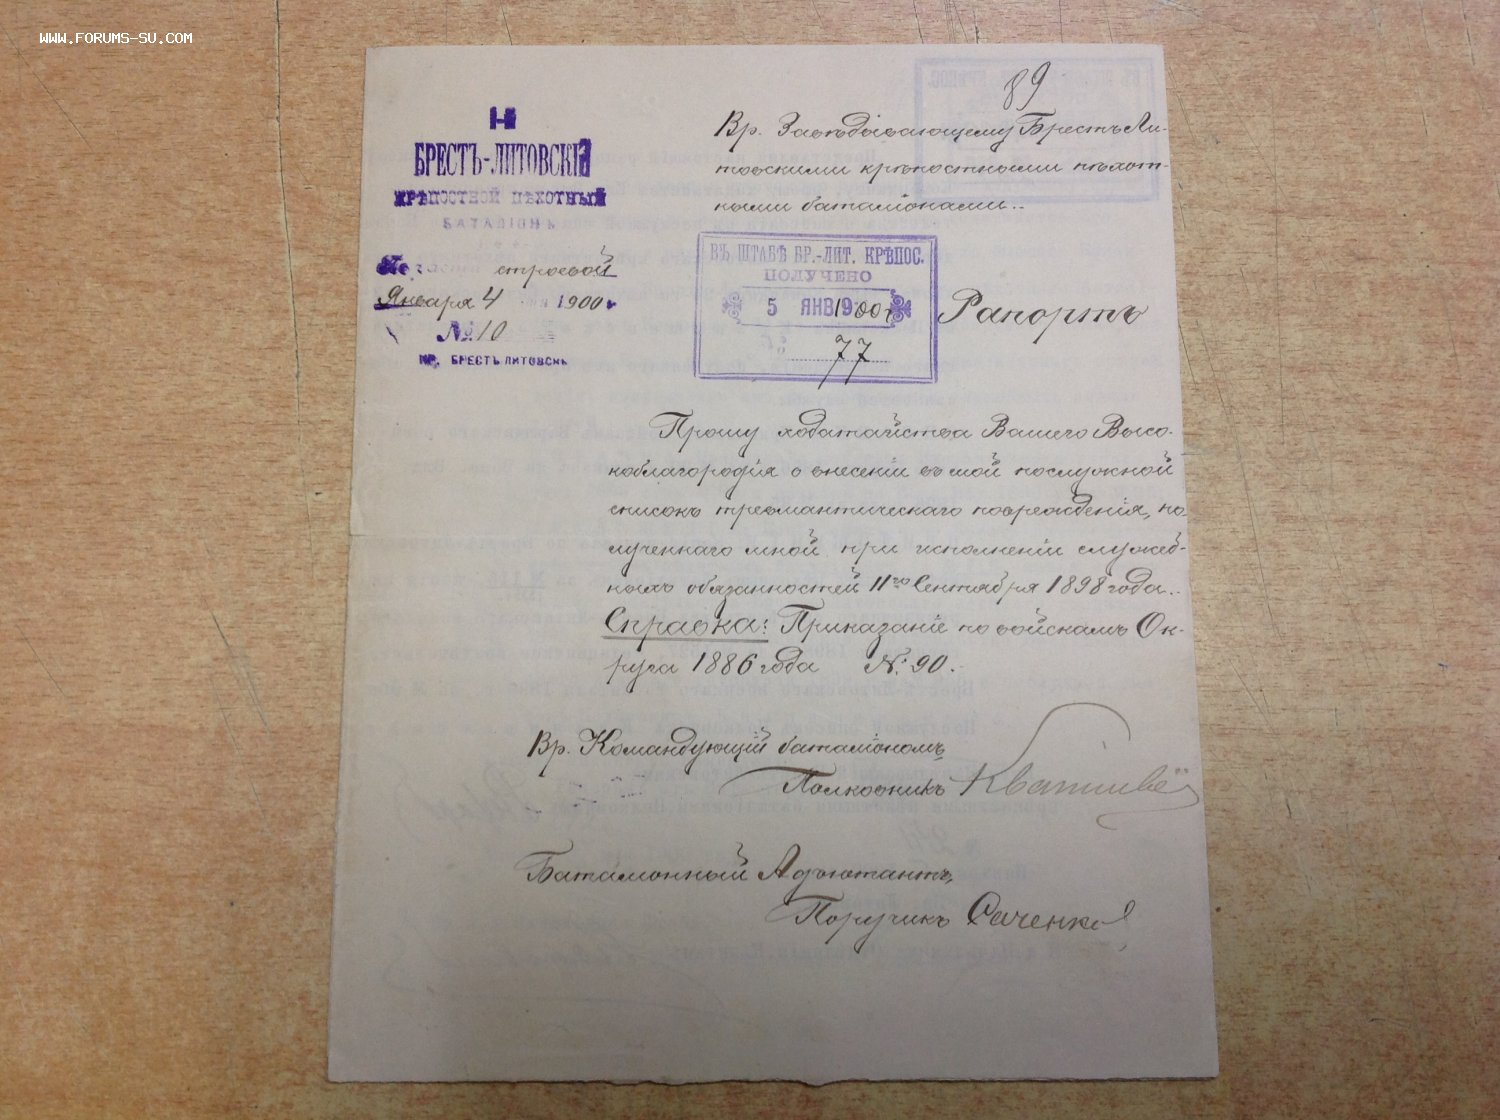 WWW.FORUMS-SU.COM
89
1-й
БРЕСТЪ-ЛИТОВСКІЙ
КРѢПОСТНОЙ ПѢХОТНЫЙ
БАТАЛІОНЪ
По части строевой
Января 4 1900 г.
№ 10
КР. БРЕСТЪ ЛИТОВСКЪ
Вр. Завѣдывающему Брестъ Ли-
товскими крѣпостными пѣхот-
ными баталіонами..
ВЪ ШТАБѢ БР.-ЛИТ. КРѢПОС.
ПОЛУЧЕНО
5 ЯНВ 1900 г
77
Рапортъ
Прошу ходатайства Вашего Высо-
коблагородія о внесеніи въ мой послужной
списокъ тревматическаго поврежденія, по
лученнаго мной при исполненіи служеб-
ныхъ обязанностей 11го Сентября 1898 года..
Справка: Приказаніе по войскамъ Ок-
руга 1886 года №: 90.
Вр. Командующій баталіономъ
Полковникъ
Баталіонный Адъютантъ,
Поручикъ Саченко